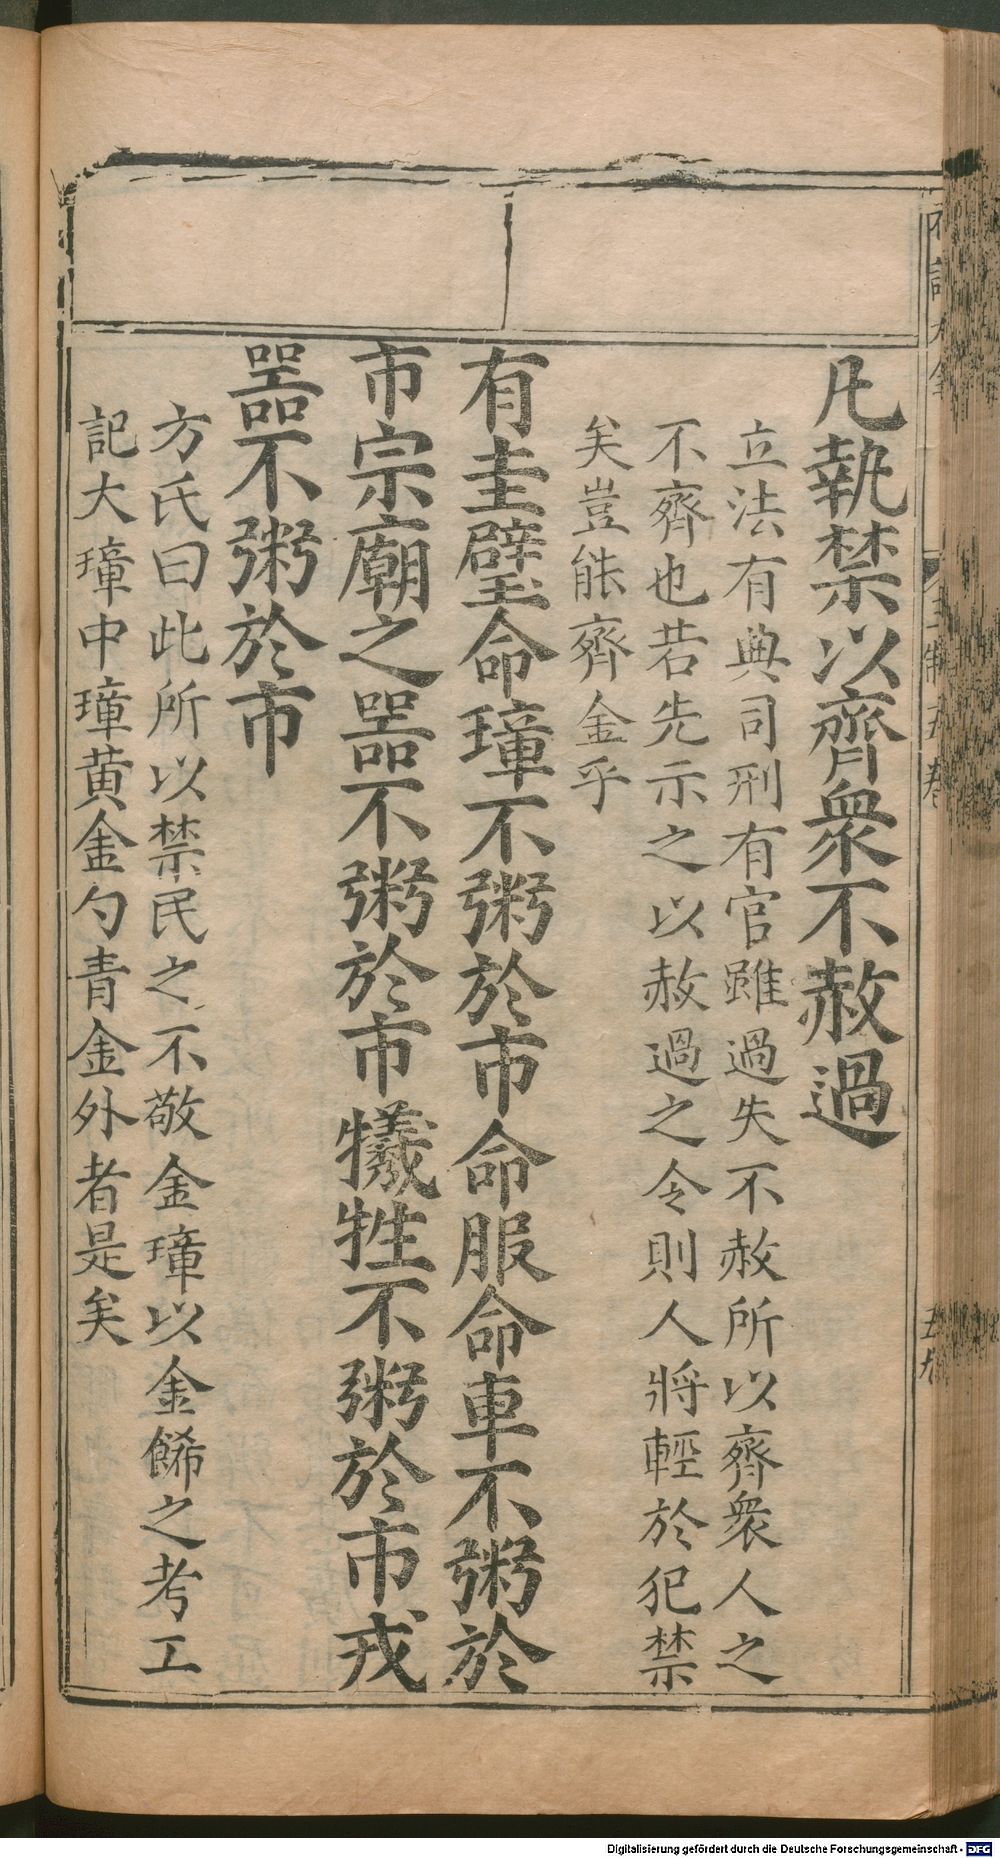 凡執禁以齊衆不赦過
立法有典司刑有官雖過失不赦所以齊衆人之
不齊也若先示之以赦過之令則人將輕於犯禁
矣豈能齊金乎
有圭璧命璋不粥於市命服命車不粥於
市宗廟之噐不粥於市犧牲不粥於市戎
噐不粥於市
方氏曰此所以禁民之不敬金璋以金餙之考工
記大璋中璋黄金勺青金外者是矣
王制五卷
五九
Digitalisierung gefördert durch die Deutsche Forschungsgemeinschaft - DFG